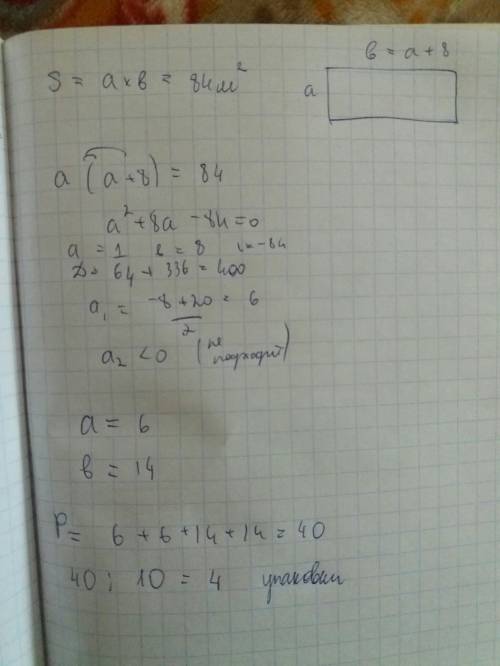 в = a + 8
S = a × в = 84 м²
a
a (a + 8) = 84
a² + 8a - 84 = 0
a = 1 в = 8 c = -84
D = 64 + 336 = 400
a₁ = -8 + 20 / 2 = 6
a₂ < 0 (не подходит)
a = 6
в = 14
P = 6 + 6 + 14 + 14 = 40
40 : 10 = 4 упаковки